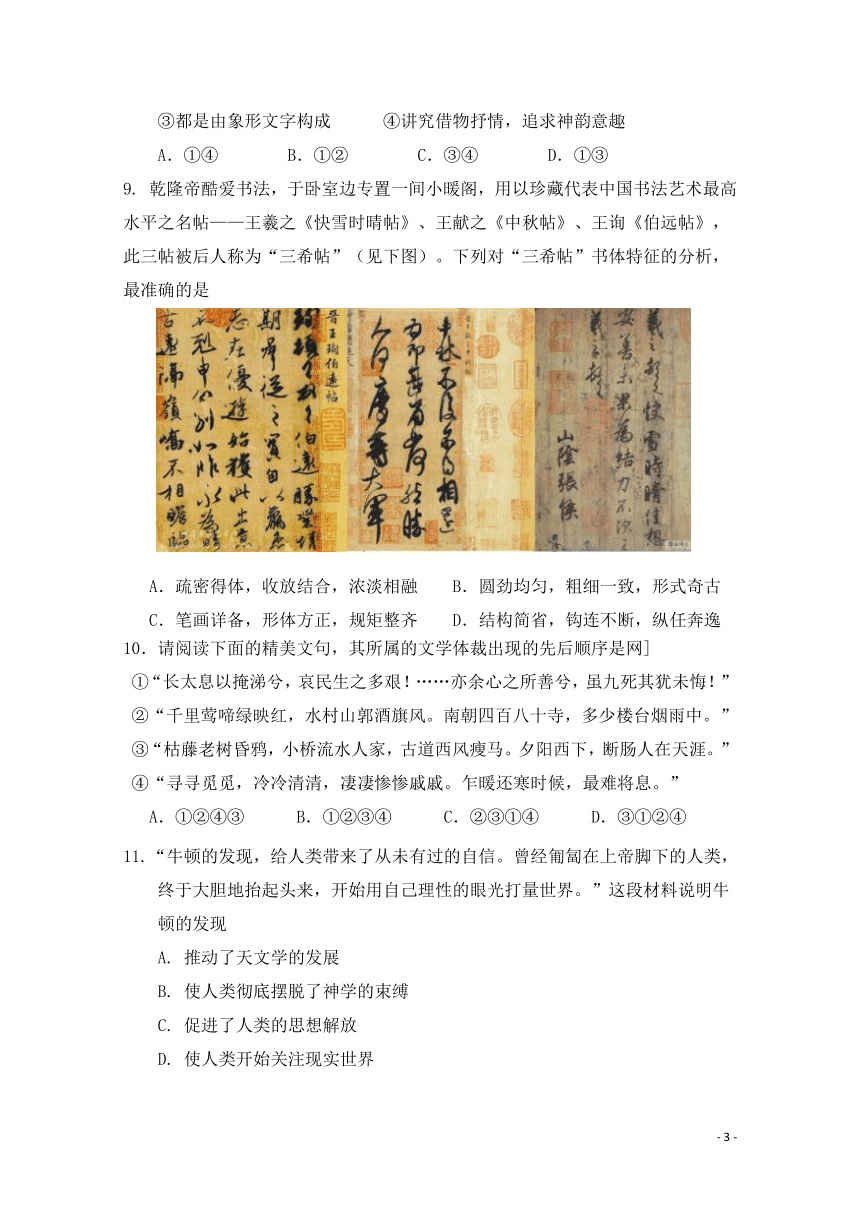 ③都是由象形文字构成 ④讲究借物抒情，追求神韵意趣
A．①④ B．①② C．③④ D．①③
9. 乾隆帝酷爱书法，于卧室边专置一间小暖阁，用以珍藏代表中国书法艺术最高
水平之名帖——王羲之《快雪时晴帖》、王献之《中秋帖》、王询《伯远帖》，
此三帖被后人称为“三希帖”（见下图）。下列对“三希帖”书体特征的分析，
最准确的是
晋王珣伯远帖
羲之顿首快雪时晴佳想
安善未果为结力不次
羲之顿首
山陰張侯
A．疏密得体，收放结合，浓淡相融 B．圆劲均匀，粗细一致，形式奇古
C．笔画详备，形体方正，规矩整齐 D．结构简省，钩连不断，纵任奔逸
10．请阅读下面的精美文句，其所属的文学体裁出现的先后顺序是网]
①“长太息以掩涕兮，哀民生之多艰！……亦余心之所善兮，虽九死其犹未悔！”
②“千里莺啼绿映红，水村山郭酒旗风。南朝四百八十寺，多少楼台烟雨中。”
③“枯藤老树昏鸦，小桥流水人家，古道西风瘦马。夕阳西下，断肠人在天涯。”
④“寻寻觅觅，冷冷清清，凄凄惨惨戚戚。乍暖还寒时候，最难将息。”
A．①②④③ B．①②③④ C．②③①④ D．③①②④
11.“牛顿的发现，给人类带来了从未有过的自信。曾经匍匐在上帝脚下的人类，
终于大胆地抬起头来，开始用自己理性的眼光打量世界。”这段材料说明牛
顿的发现
A. 推动了天文学的发展
B. 使人类彻底摆脱了神学的束缚
C. 促进了人类的思想解放
D. 使人类开始关注现实世界
- 3 -